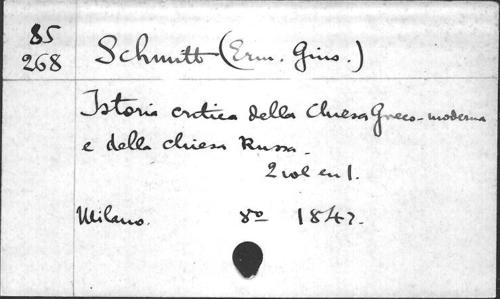 85
268
Schmitt (Erm. Gius.)
Istoria critica della Chiesa Greco-moderna
e della chiesa Russa.
2 vol en 1.
Milano. 8º 1842.